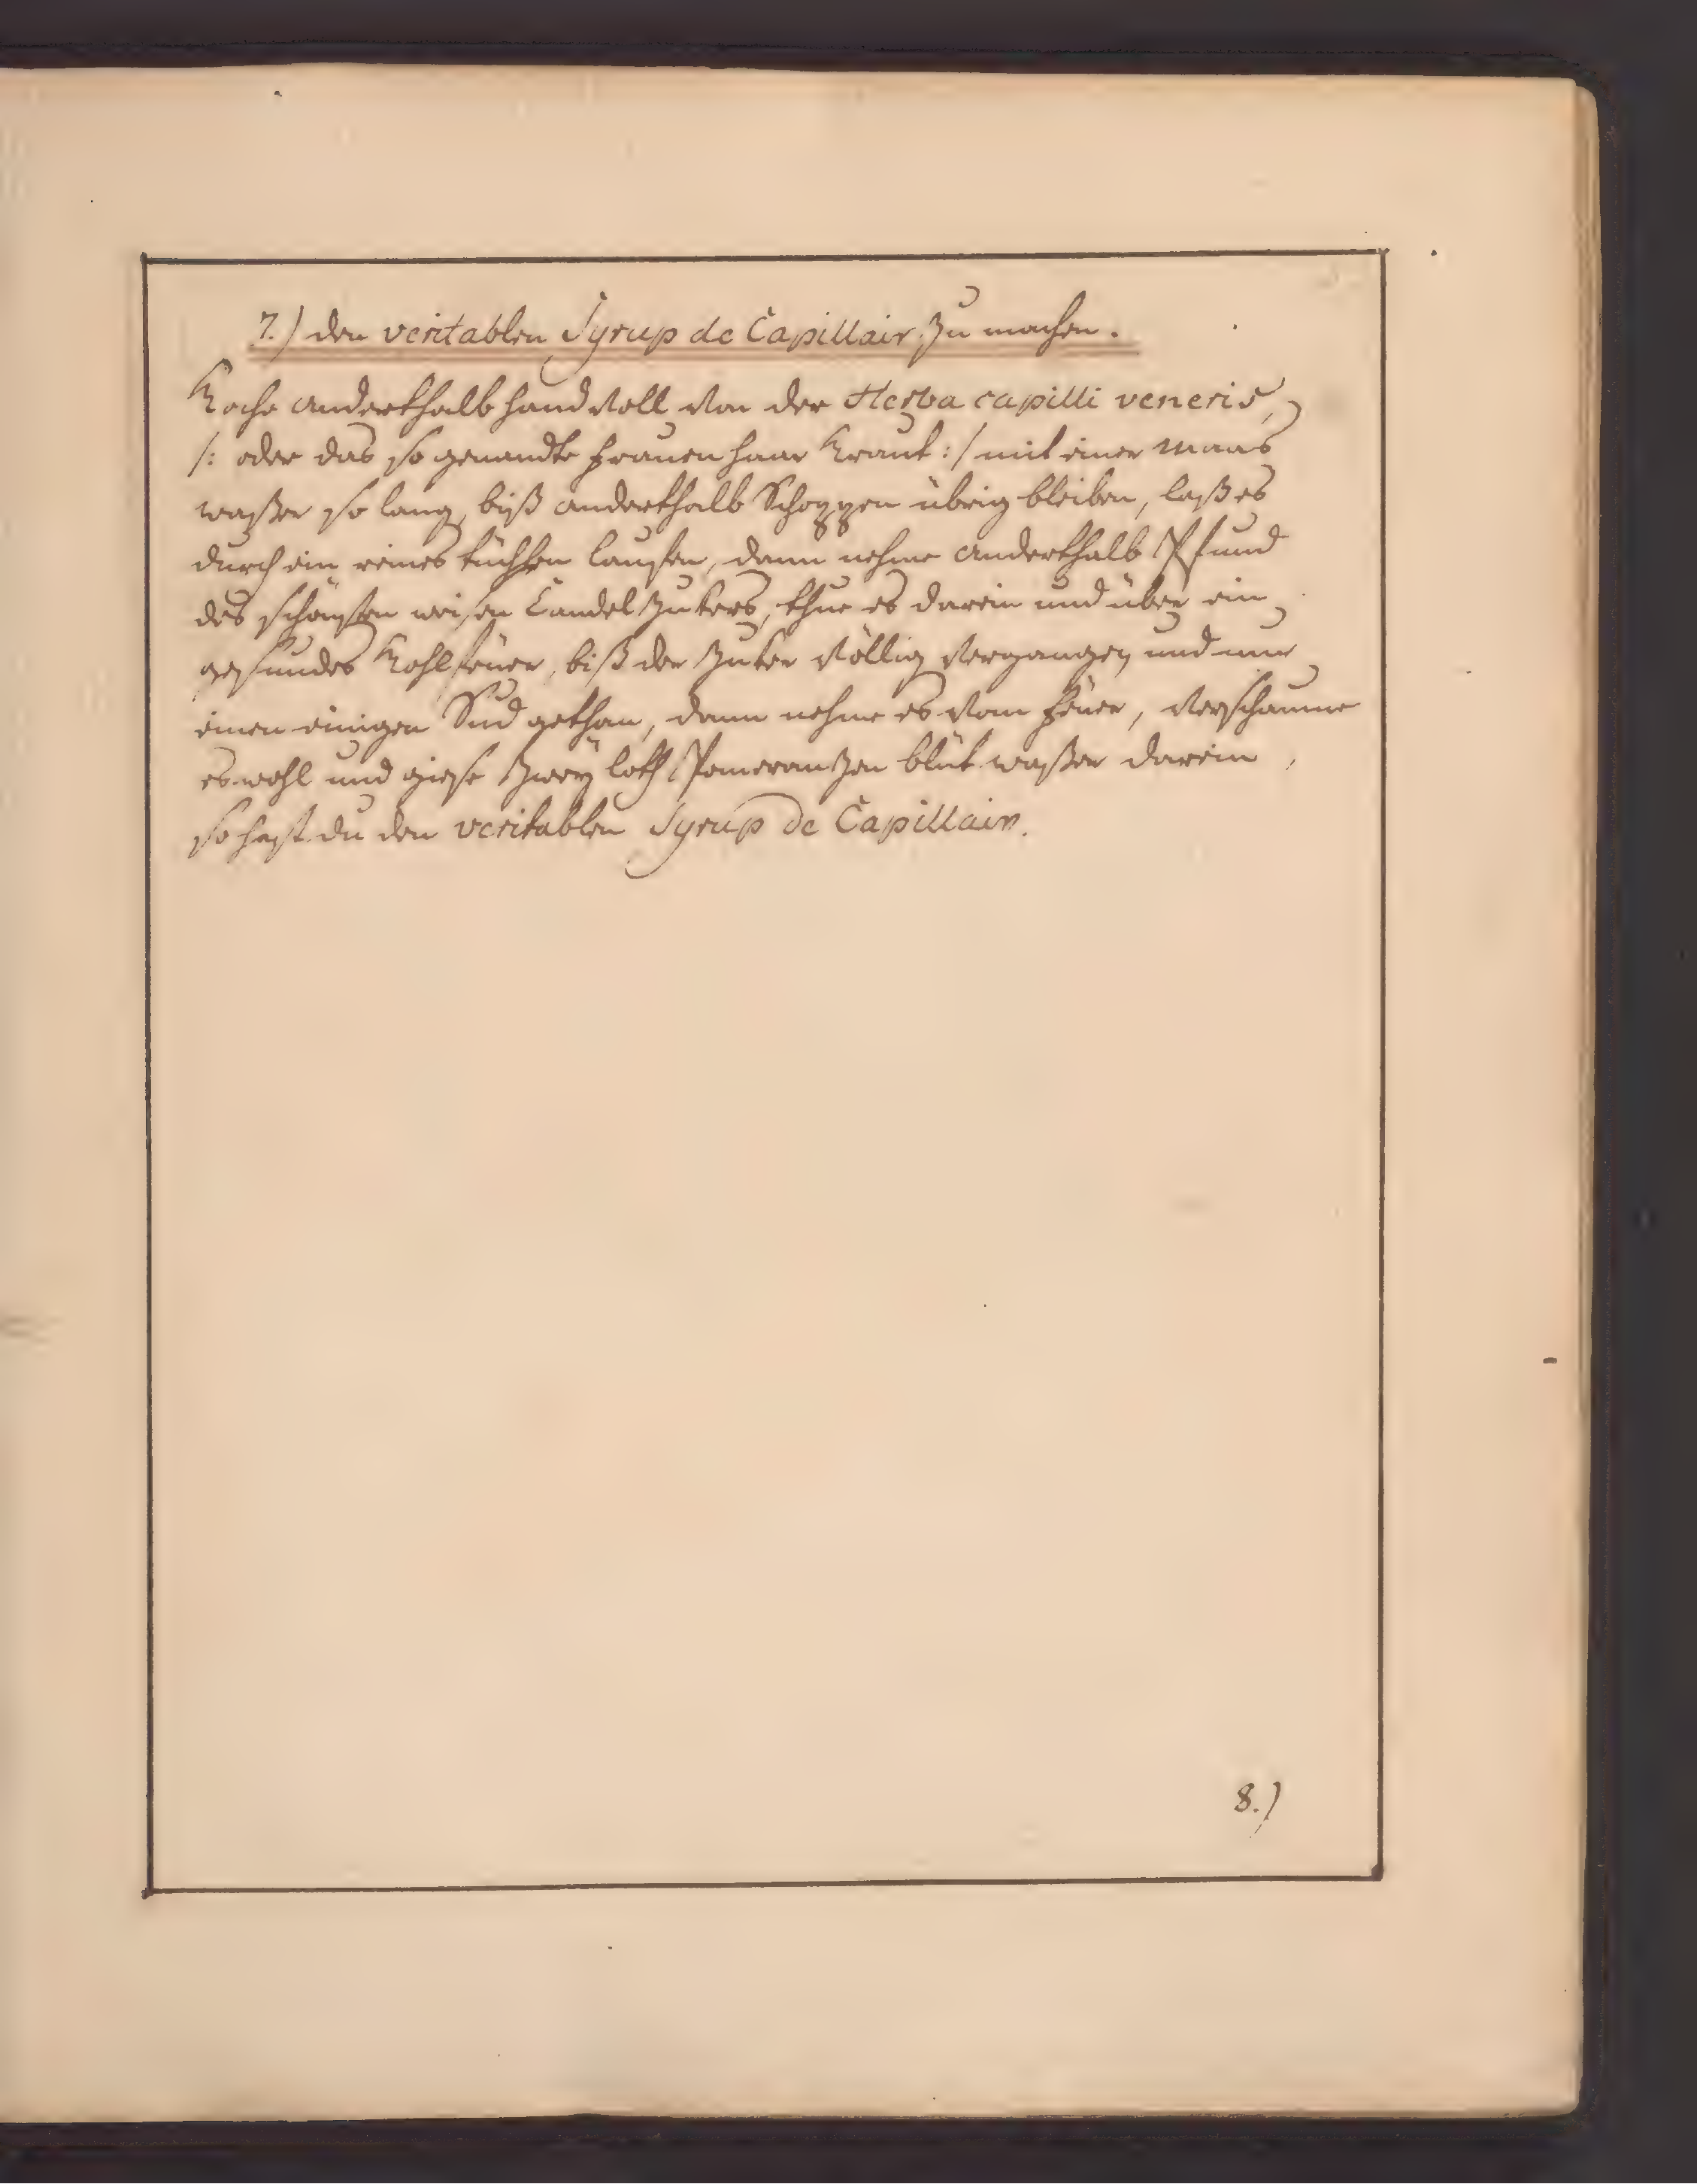 7.) den veritablen Syrup de Capillair zu machen.
Koche anderthalb hand voll von der Herba capilli veneris,
/: oder das so genandte frauen haar Kraut :/ mit einer Maas
waßer so lang, biß anderthalb Schoppen übrig bleiben, laß es
durch ein reines tüchlen laufen, dann nehme anderthalb Pfund
des schönsten weisen Candel Zukers, thue es darein und über ein
gesundes Kohlfeuer, biß der Zuker völlig vergangen und nur
einen einigen Sud gethan, dann nehme es vom feuer, verschaume
es wohl und giese zwey loth Pomeranzen blüt waßer darein,
so hast du den veritablen Syrup de Capillair.
8.)